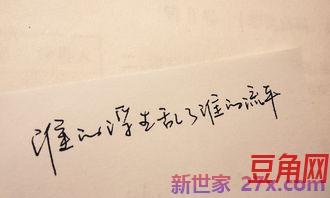 谁的浮生乱了谁的流年
豆角网
新世家 27x.com